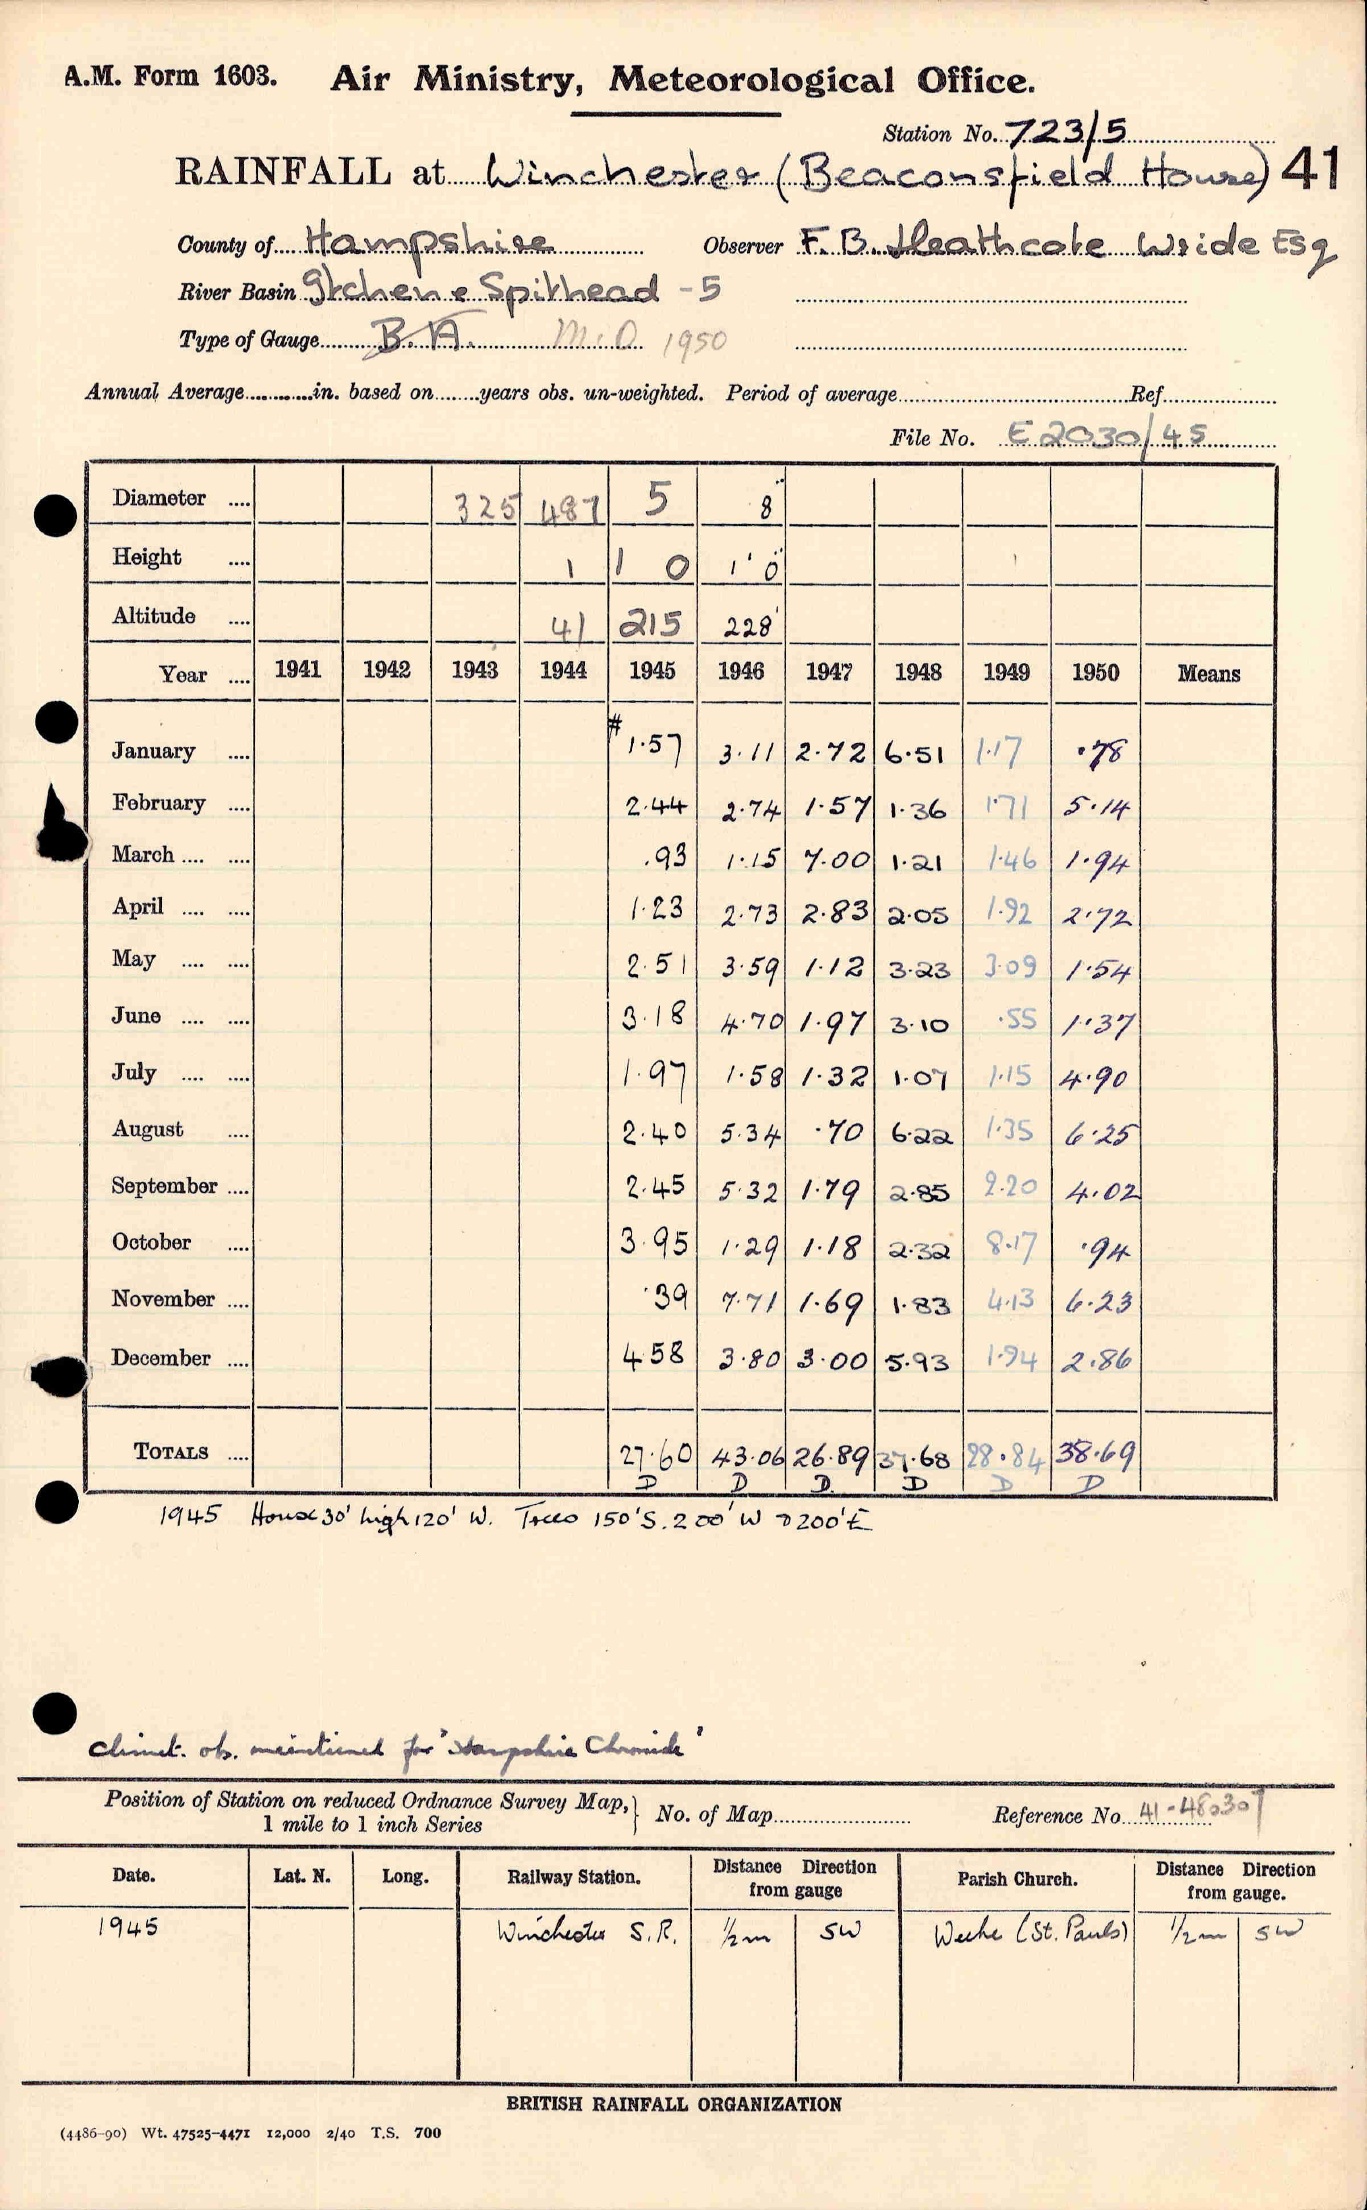 A.M. Form 1603. Air Ministry, Meteorological Office.
Station No. 723/5
RAINFALL at Winchester (Beaconsfield House) 41
County of Hampshire Observer F.B. Heathcote Wride Esq
River Basin Itchen & Spithead - 5
Type of Gauge B.A. M.O 1950
Annual Average in. based on years obs. un-weighted. Period of average Ref.
File No. E 2030/45
Diameter 325 487 5 8"
Height 1 1 0 1' 0"
Altitude 41 215 228'
Year 1941 1942 1943 1944 1945 1946 1947 1948 1949 1950 Means
January # 1.57 3.11 2.72 6.51 1.17 .78
February 2.44 2.74 1.57 1.36 1.71 5.14
March .93 1.15 7.00 1.21 1.46 1.94
April 1.23 2.73 2.83 2.05 1.92 2.72
May 2.51 3.59 1.12 3.23 3.09 1.54
June 3.18 4.70 1.97 3.10 .55 1.37
July 1.97 1.58 1.32 1.07 1.15 4.90
August 2.40 5.34 .70 6.22 1.35 6.25
September 2.45 5.32 1.79 2.85 2.20 4.02
October 3.95 1.29 1.18 2.32 8.17 .94
November .39 7.71 1.69 1.83 4.13 6.23
December 4.58 3.80 3.00 5.93 1.94 2.86
TOTALS 27.60 43.06 26.89 37.68 28.84 38.69
D D D. D D D
1945 House 30' high 120' W. Trees 150' S. 200' W & 200' E
Climat. obs. maintained for 'Hampshire Chronicle'
Position of Station on reduced Ordnance Survey Map,} No. of Map Reference No. 41-480307
1 mile to 1 inch Series
Date. Lat. N. Long. Railway Station. Distance Direction from gauge Parish Church. Distance Direction from gauge.
1945 Winchester S.R. 1/2 m SW Weeke (St. Pauls) 1/2 m SW
BRITISH RAINFALL ORGANIZATION
(4486-90) Wt. 47525-4471 12,000 2/40 T.S. 700